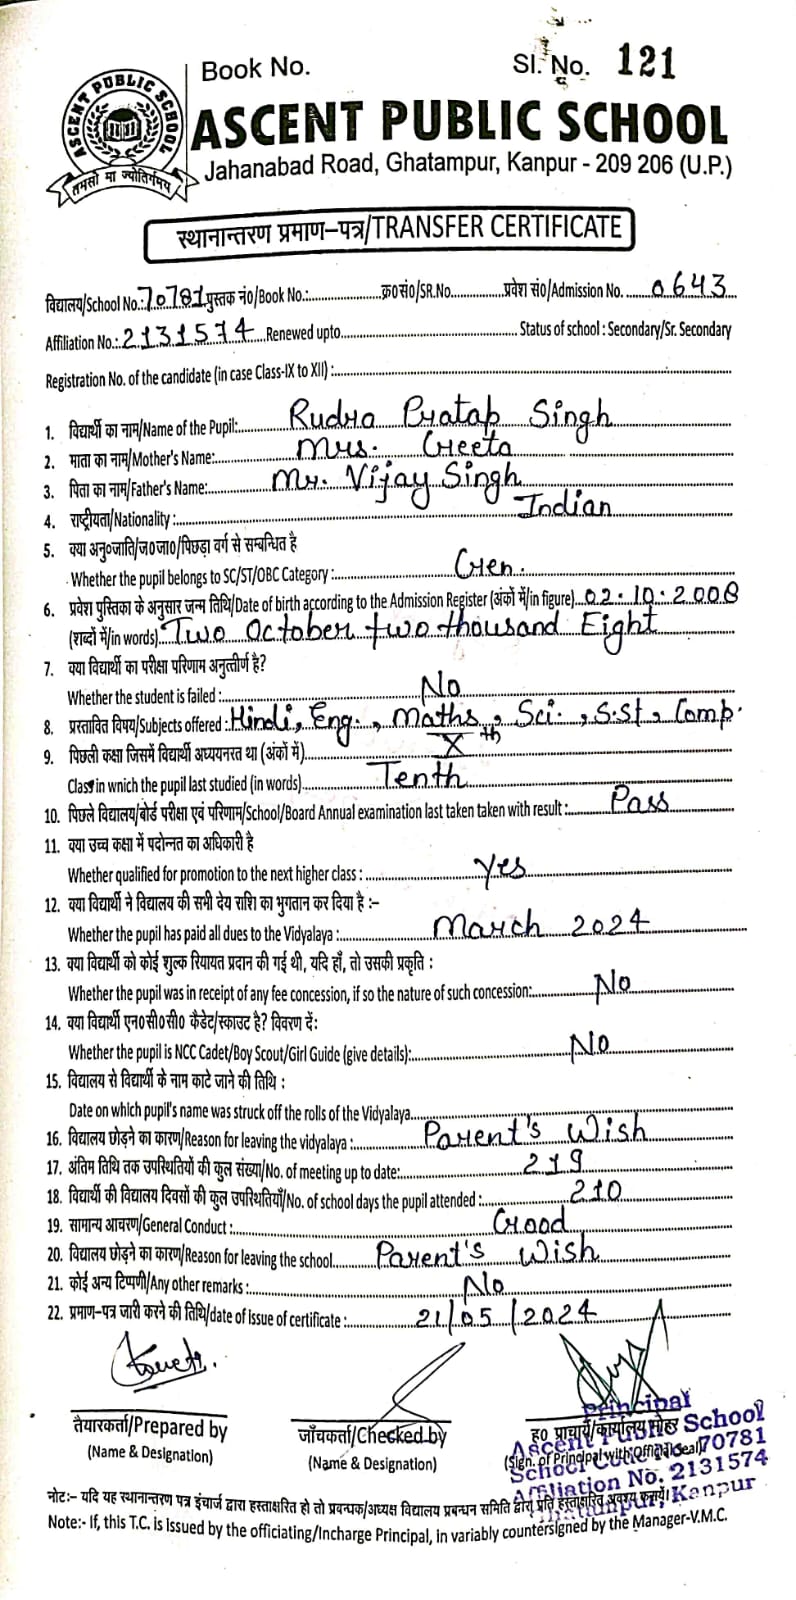 Book No.
Sl. No. 121
ASCENT PUBLIC SCHOOL
तमसो मा ज्योतिर्गमय
ASCENT PUBLIC SCHOOL
Jahanabad Road, Ghatampur, Kanpur - 209 206 (U.P.)
स्थानान्तरण प्रमाण-पत्र/TRANSFER CERTIFICATE
विद्यालय/School No.: 70781 पुस्तक नं०/Book No.: क्र०सं०/SR.No. प्रवेश सं०/Admission No. 0643
Affiliation No.: 2131574 Renewed upto Status of school : Secondary/Sr. Secondary
Registration No. of the candidate (in case Class-IX to XII) :
1. विद्यार्थी का नाम/Name of the Pupil: Rudra Pratap Singh
2. माता का नाम/Mother's Name: Mrs. Geeta
3. पिता का नाम/Father's Name: Mr. Vijay Singh
4. राष्ट्रीयता/Nationality : Indian
5. क्या अनु०जाति/ज०जा०/पिछड़ा वर्ग से सम्बन्धित है
Whether the pupil belongs to SC/ST/OBC Category : Gen.
6. प्रवेश पुस्तिका के अनुसार जन्म तिथि/Date of birth according to the Admission Register (अंकों में/in figure) 02.10.2008
(शब्दों में/in words) Two October two thousand Eight
7. क्या विद्यार्थी का परीक्षा परिणाम अनुत्तीर्ण है?
Whether the student is failed : No
8. प्रस्तावित विषय/Subjects offered : Hindi, Eng., Maths, Sci., S.St, Comp.
9. पिछली कक्षा जिसमें विद्यार्थी अध्ययनरत था (अंकों में) Xth
Class in wnich the pupil last studied (in words) Tenth
10. पिछले विद्यालय/बोर्ड परीक्षा एवं परिणाम/School/Board Annual examination last taken taken with result : Pass
11. क्या उच्च कक्षा में पदोन्नत का अधिकारी है
Whether qualified for promotion to the next higher class : Yes
12. क्या विद्यार्थी ने विद्यालय की सभी देय राशि का भुगतान कर दिया है :-
Whether the pupil has paid all dues to the Vidyalaya : March 2024
13. क्या विद्यार्थी को कोई शुल्क रियायत प्रदान की गई थी, यदि हाँ, तो उसकी प्रकृति :
Whether the pupil was in receipt of any fee concession, if so the nature of such concession: No
14. क्या विद्यार्थी एन०सी०सी० कैडेट/स्काउट है? विवरण दें:
Whether the pupil is NCC Cadet/Boy Scout/Girl Guide (give details): No
15. विद्यालय से विद्यार्थी के नाम काटे जाने की तिथि :
Date on which pupil's name was struck off the rolls of the Vidyalaya
16. विद्यालय छोड़ने का कारण/Reason for leaving the vidyalaya : Parent's Wish
17. अंतिम तिथि तक उपस्थितियों की कुल संख्या/No. of meeting up to date: 219
18. विद्यार्थी की विद्यालय दिवसों की कुल उपस्थितियाँ/No. of school days the pupil attended : 210
19. सामान्य आचरण/General Conduct : Good
20. विद्यालय छोड़ने का कारण/Reason for leaving the school Parent's Wish
21. कोई अन्य टिप्पणी/Any other remarks : No
22. प्रमाण-पत्र जारी करने की तिथि/date of issue of certificate : 21/05/2024
तैयारकर्ता/Prepared by
(Name & Designation)
जाँचकर्ता/Checked by
(Name & Designation)
ह० प्राचार्य/कार्यालय मोहर
(Sign. of Principal with Official Seal)
Principal
Ascent Public School
School Code 70781
Affiliation No. 2131574
Ghatampur, Kanpur
नोट:- यदि यह स्थानान्तरण पत्र इंचार्ज द्वारा हस्ताक्षरित हो तो प्रबन्धक/अध्यक्ष विद्यालय प्रबन्धन समिति द्वारा प्रति हस्ताक्षरित अवश्य करायें।
Note:- If, this T.C. is issued by the officiating/Incharge Principal, in variably countersigned by the Manager-V.M.C.